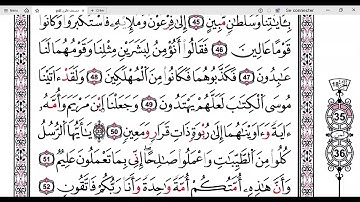 Se connecter
بِـَٔايَٰتِنَا وَسُلْطَٰنٍ مُّبِينٍ 45 إِلَىٰ فِرْعَوْنَ وَمَلَإِيْهِۦ فَاسْتَكْبَرُواْ وَكَانُواْ
قَوْماً عَالِينَ 46 فَقَالُوٓاْ أَنُؤْمِنُ لِبَشَرَيْنِ مِثْلِنَا وَقَوْمُهُمَا لَنَا
عَٰبِدُونَ 47 فَكَذَّبُوهُمَا فَكَانُواْ مِنَ ٱلْمُهْلَكِينَ 48 وَلَقَدَ ءَاتَيْنَا
مُوسَى ٱلْكِتَٰبَ لَعَلَّهُمْ يَهْتَدُونَ 49 وَجَعَلْنَا ٱبْنَ مَرْيَمَ وَأُمَّهُۥٓ
ءَايَةً وَءَاوَيْنَٰهُمَآ إِلَىٰ رُبْوَةٍ ذَاتِ قَرَارٍ وَمَعِينٍ 50 يَٰٓأَيُّهَا ٱلرُّسُلُ
كُلُواْ مِنَ ٱلطَّيِّبَٰتِ وَٱعْمَلُواْ صَٰلِحاً إِنِّي بِمَا تَعْمَلُونَ عَلِيمٌ 51
وَأَنَّ هَٰذِهِۦٓ أُمَّتُكُمْ أُمَّةً وَٰحِدَةً وَأَنَا رَبُّكُمْ فَاتَّقُونِ 52
35
36